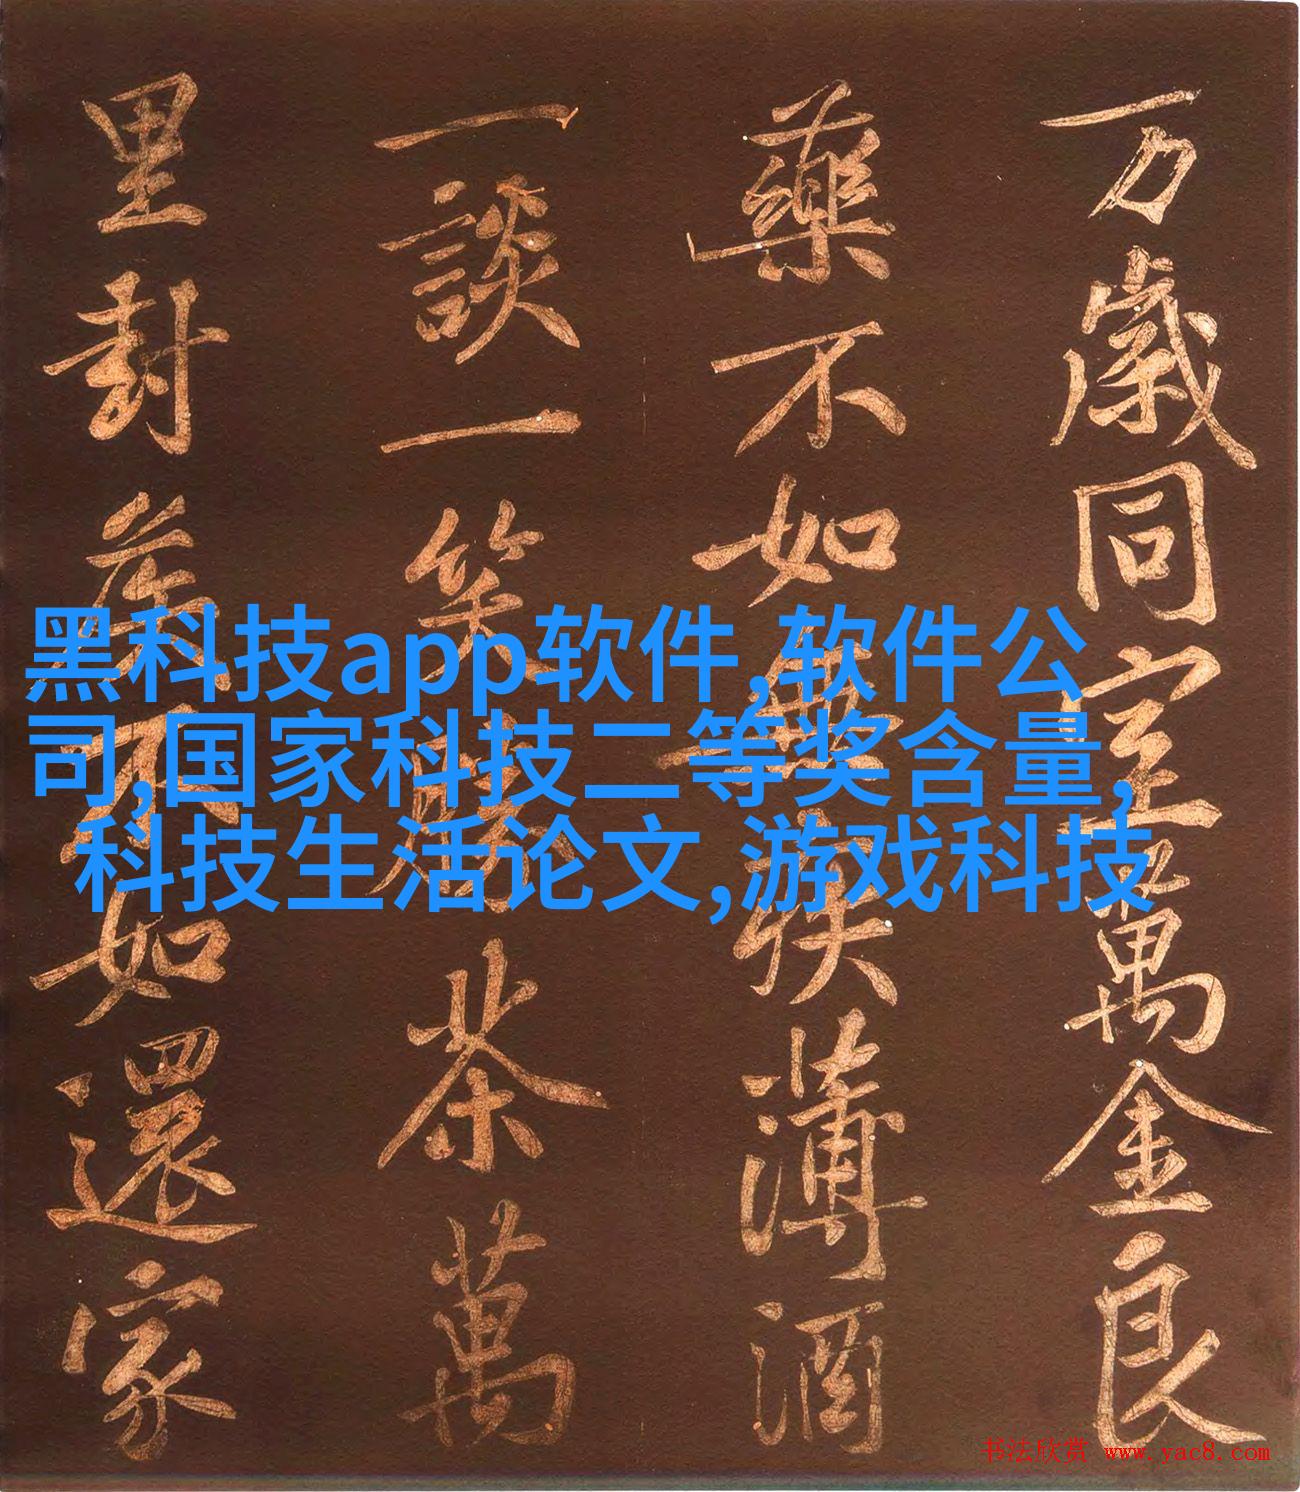 万歲同室萬金良
藥不如無疾薄酒
一談一笑勝茶萬
里封侯不如還家
黑科技app软件,软件公
司,国家科技二等奖含量,
科技生活论文,游戏科技
书法欣赏 www.yac8.com